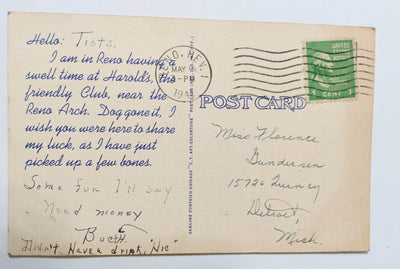 Hello: Tists,
I am in Reno having a
swell time at Harold's, the
friendly Club, near the
Reno Arch. Doggone it, I
wish you were here to share
my luck, as I have just
picked up a few bones.
Some fun I'll say
Need money
Didn't Have a drink, "Hic"
RENO, NEV.
MAY
-PM
UNITED
STATES
1 CENT 1
POST CARD
GENUINE CURTEICH-CHICAGO "C.T. ART-COLORTONE" POST CARD
Miss Florence
Gunderson
15720 Quincy
Detroit,
Mich.